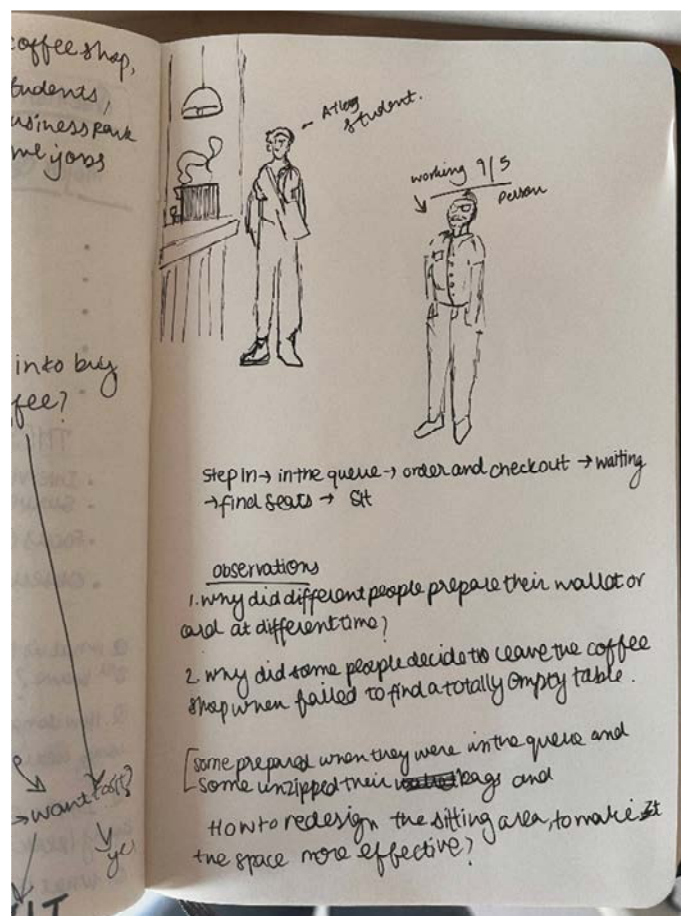 coffee shop,
students,
business park
jobs
into buy
fee?
want to sit?
ye
student.
working 9/5
person
step in → in the queue → order and checkout → waiting
→ find seats → sit
observations
1. why did different people prepare their wallet or
card at different time?
2. why did some people decide to leave the coffee
shop when failed to find a totally empty table.
[some prepared when they were in the queue and
some unzipped their bags and
How to redesign the sitting area, to make it
the space more effective?